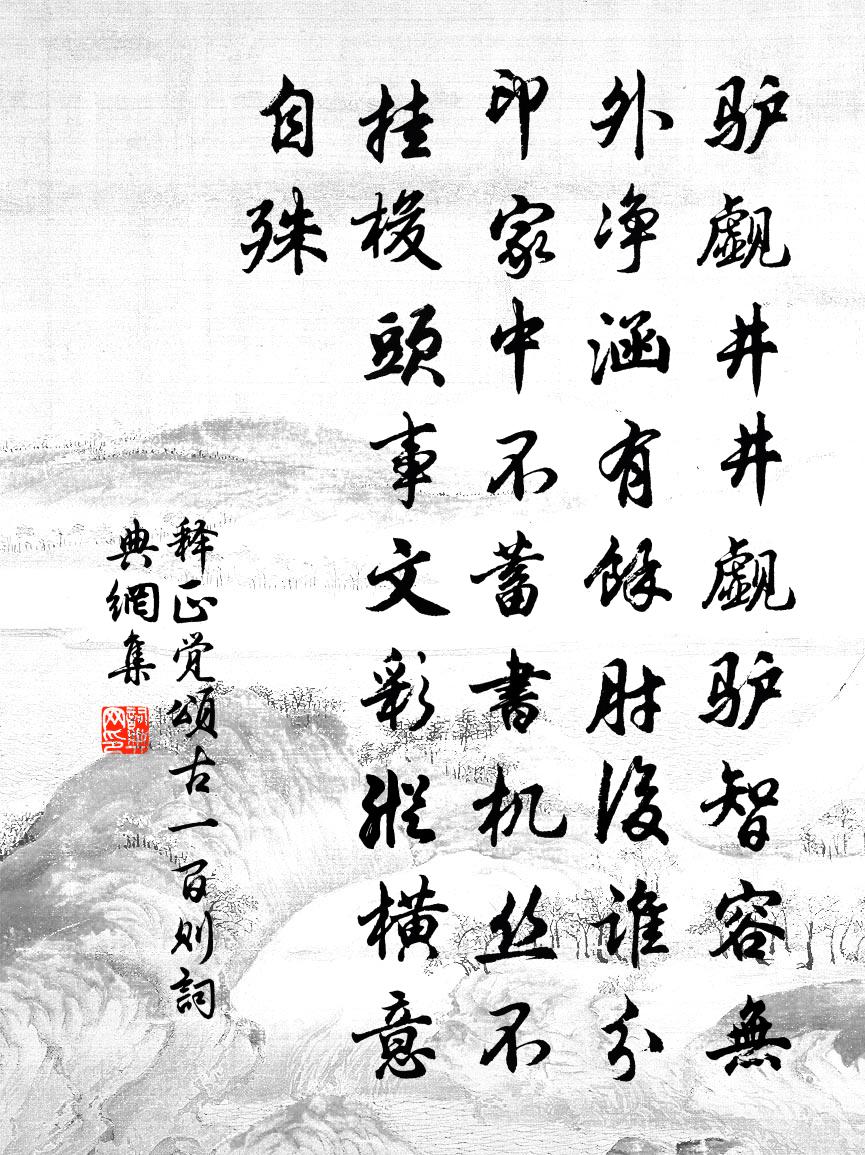 驴觑井井觑驴智容無
外净涵有餘肘後谁分
印家中不蓄書机丝不
挂梭頭事文彩縱横意
自殊
释正觉頌古一百则詞
典網集